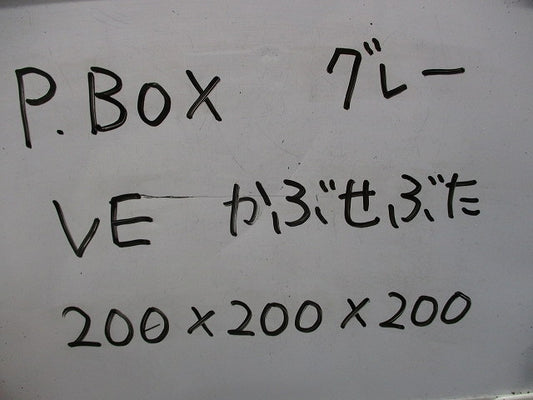 P.BOX グレー
VE かぶせぶた
200×200×200